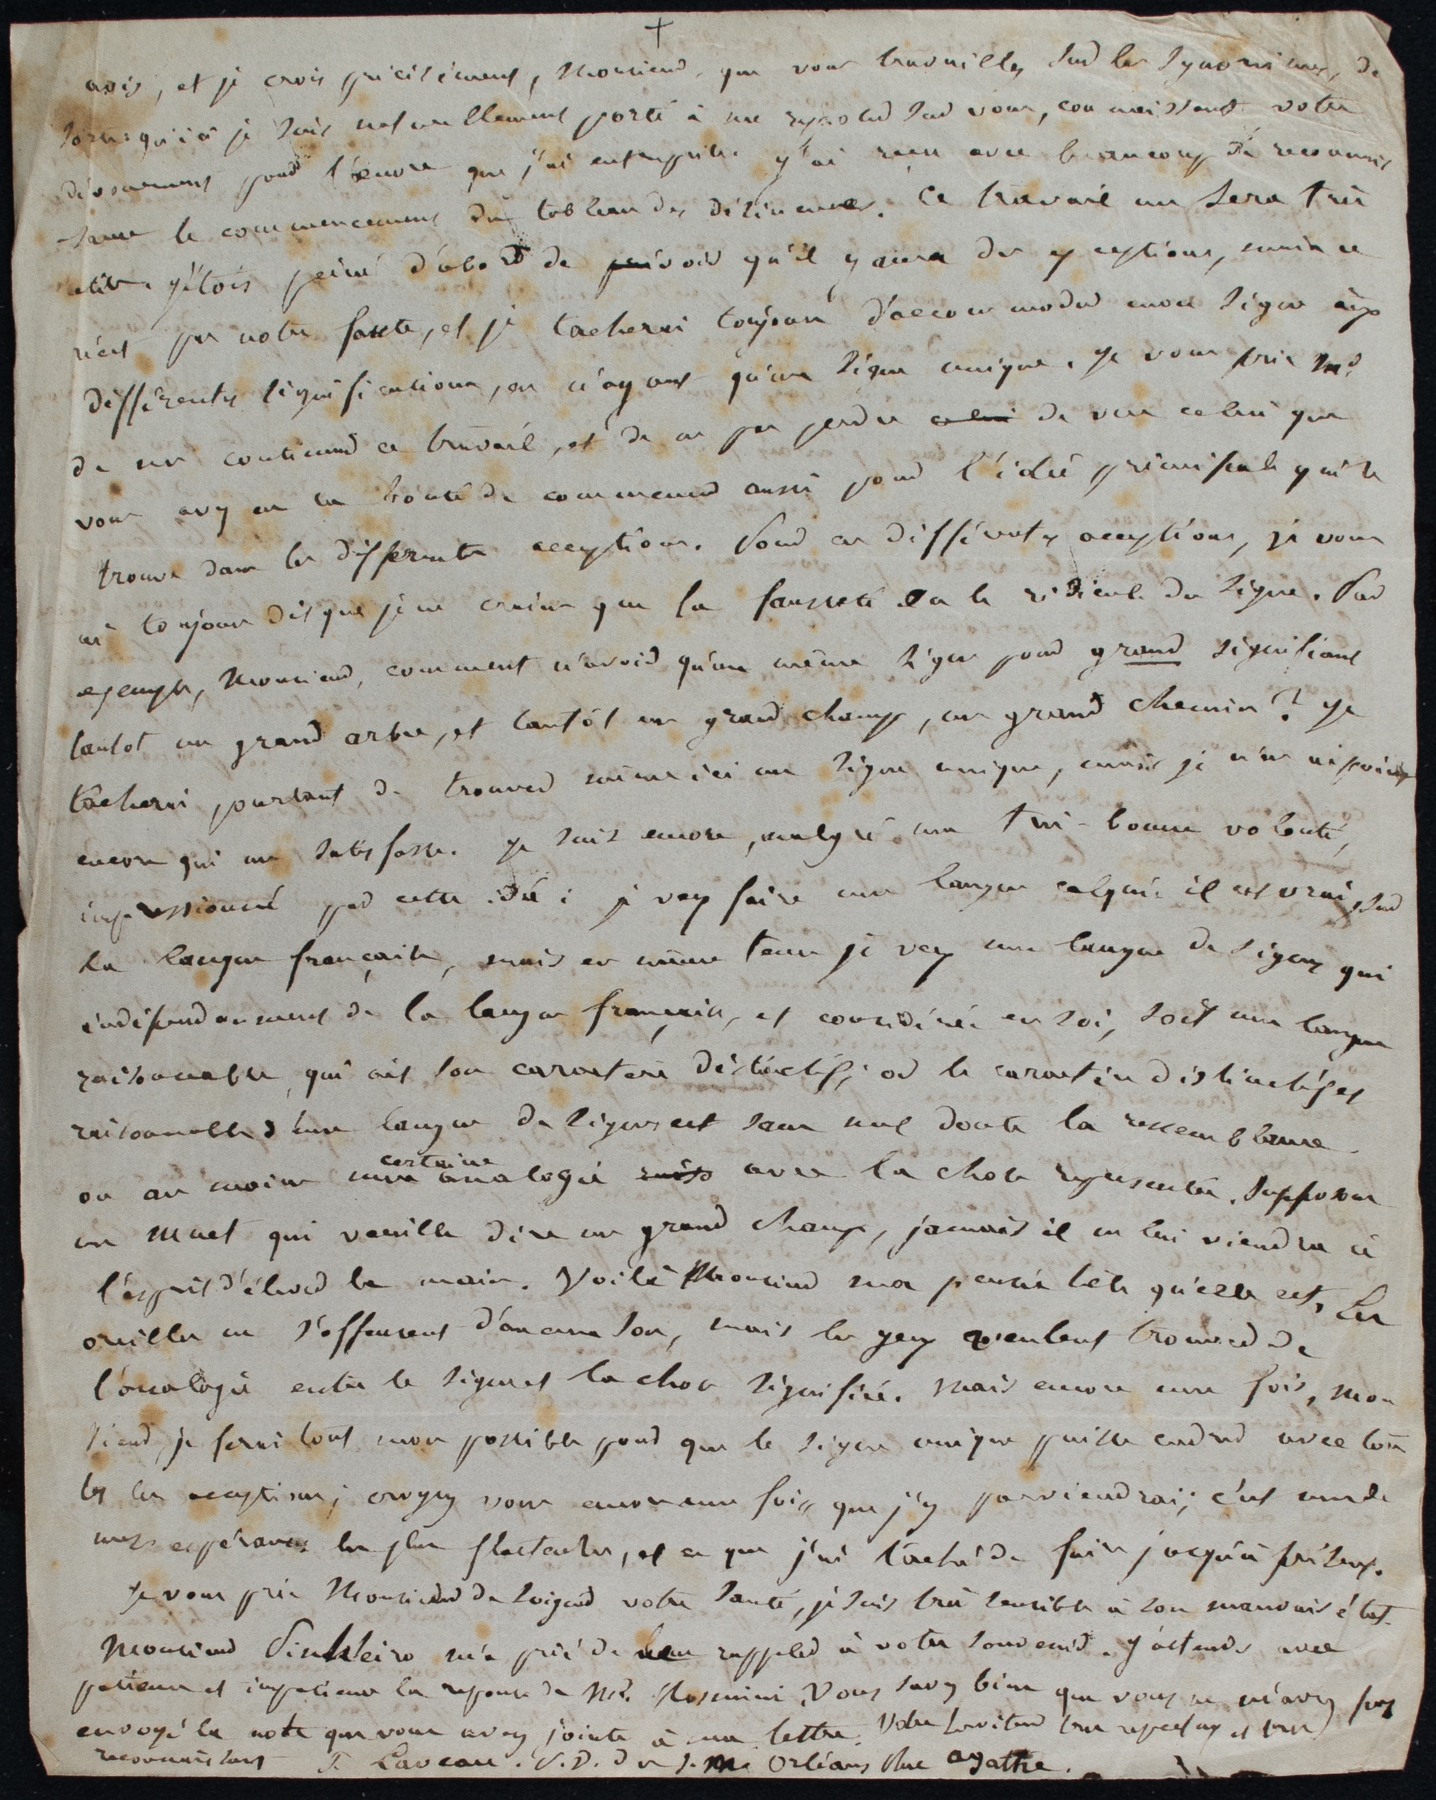 +
avis, et je crois précisément, Monsieur, que vous travaillez sur les synonimes, de
sorte qu'ici je suis naturellement porté à me reposer sur vous, connaissant votre
dévouement pour l'œuvre que j'ai entreprise. J'ai reçu avec beaucoup de reconnais
sance le commencement du tableau des désinences. Ce travail me sera très
utile. J'étois peiné d'abord de voir qu'il y aura des exceptions, mais ce
n'est pas notre faute, et je tacherai toujours d'accommoder mon signe aux
différentes significations, en n'ayant qu'un signe unique. Je vous prie Mr
de me continuer ce travail, et de ne pas perdre celui de vue celui que
vous avez eu la bonté de commencer aussi pour l'idée principale qui se
trouve dans les differentes acceptions. Pour ces différentes acceptions, je vous
ai toujours dis que je ne crains que la fausseté ou le ridicule du signe. Par
exemple, Monsieur, comment n'avoir qu'un même signe pour grand signifiant
tantot un grand arbre, et tantôt un grand champ, un grand chemin? Je
tacherai pourtant de trouver même ici un signe unique, mais je n'en ai point
encore qui me satisfasse. Je suis encore, malgré ma très-bonne volonté,
impressionné par cette idée: je veux faire une langue calquée il est vrai, sur
la langue française, mais en même tems je veux une langue de signes qui
indépendamment de la langue française, et considérée en soi, soit une langue
raisonnable, qui ait son caractère distinctif; or le caractère distinctif et
raisonnable d'une langue de signes est sans nul doute la ressemblance
ou au moins une certaine analogie avec la chose representée. Supposons
un muet qui veuille dire un grand champ, jamais il ne lui viendra à
l'esprit d'élever la main. Voilà Monsieur ma pensée telle qu'elle est. Les
oreilles ne s'offensent d'aucun son, mais les yeux veulent trouver de
l'analogie entre le signe et la chose signifiée. Mais encore une fois, Mon
sieur, je ferai tout mon possible pour que le signe unique puisse cadrer avec tou
tes les acceptions; croyez vous encore une fois que j'y parviendrai; c'est une de
mes espérances les plus flatteuses, et ce que j'ai taché de faire jusqu'à présent.
Je vous prie Monsieur de soigner votre santé, je suis très sensible à son mauvais état.
Monsieur Pinheiro m'a prié de le rappeler à votre souvenir. J'attends avec
patience et impatience la reponse de Mr. Rosmini. Vous savez bien que vous ne m'avez pas
envoyé la note que vous avez jointe à ma lettre. Votre serviteur très respectueux et très
reconnaissant J. Laveau. S.D. d. s. M. Orléans Rue agathe.